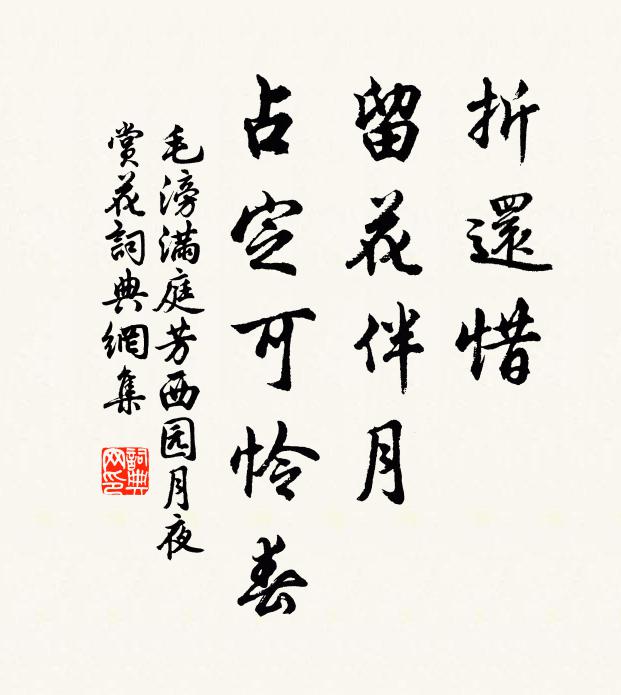 折還惜
留花伴月
占定可怜春
毛滂滿庭芳西园月夜
賞花詞典網集
詞典网印